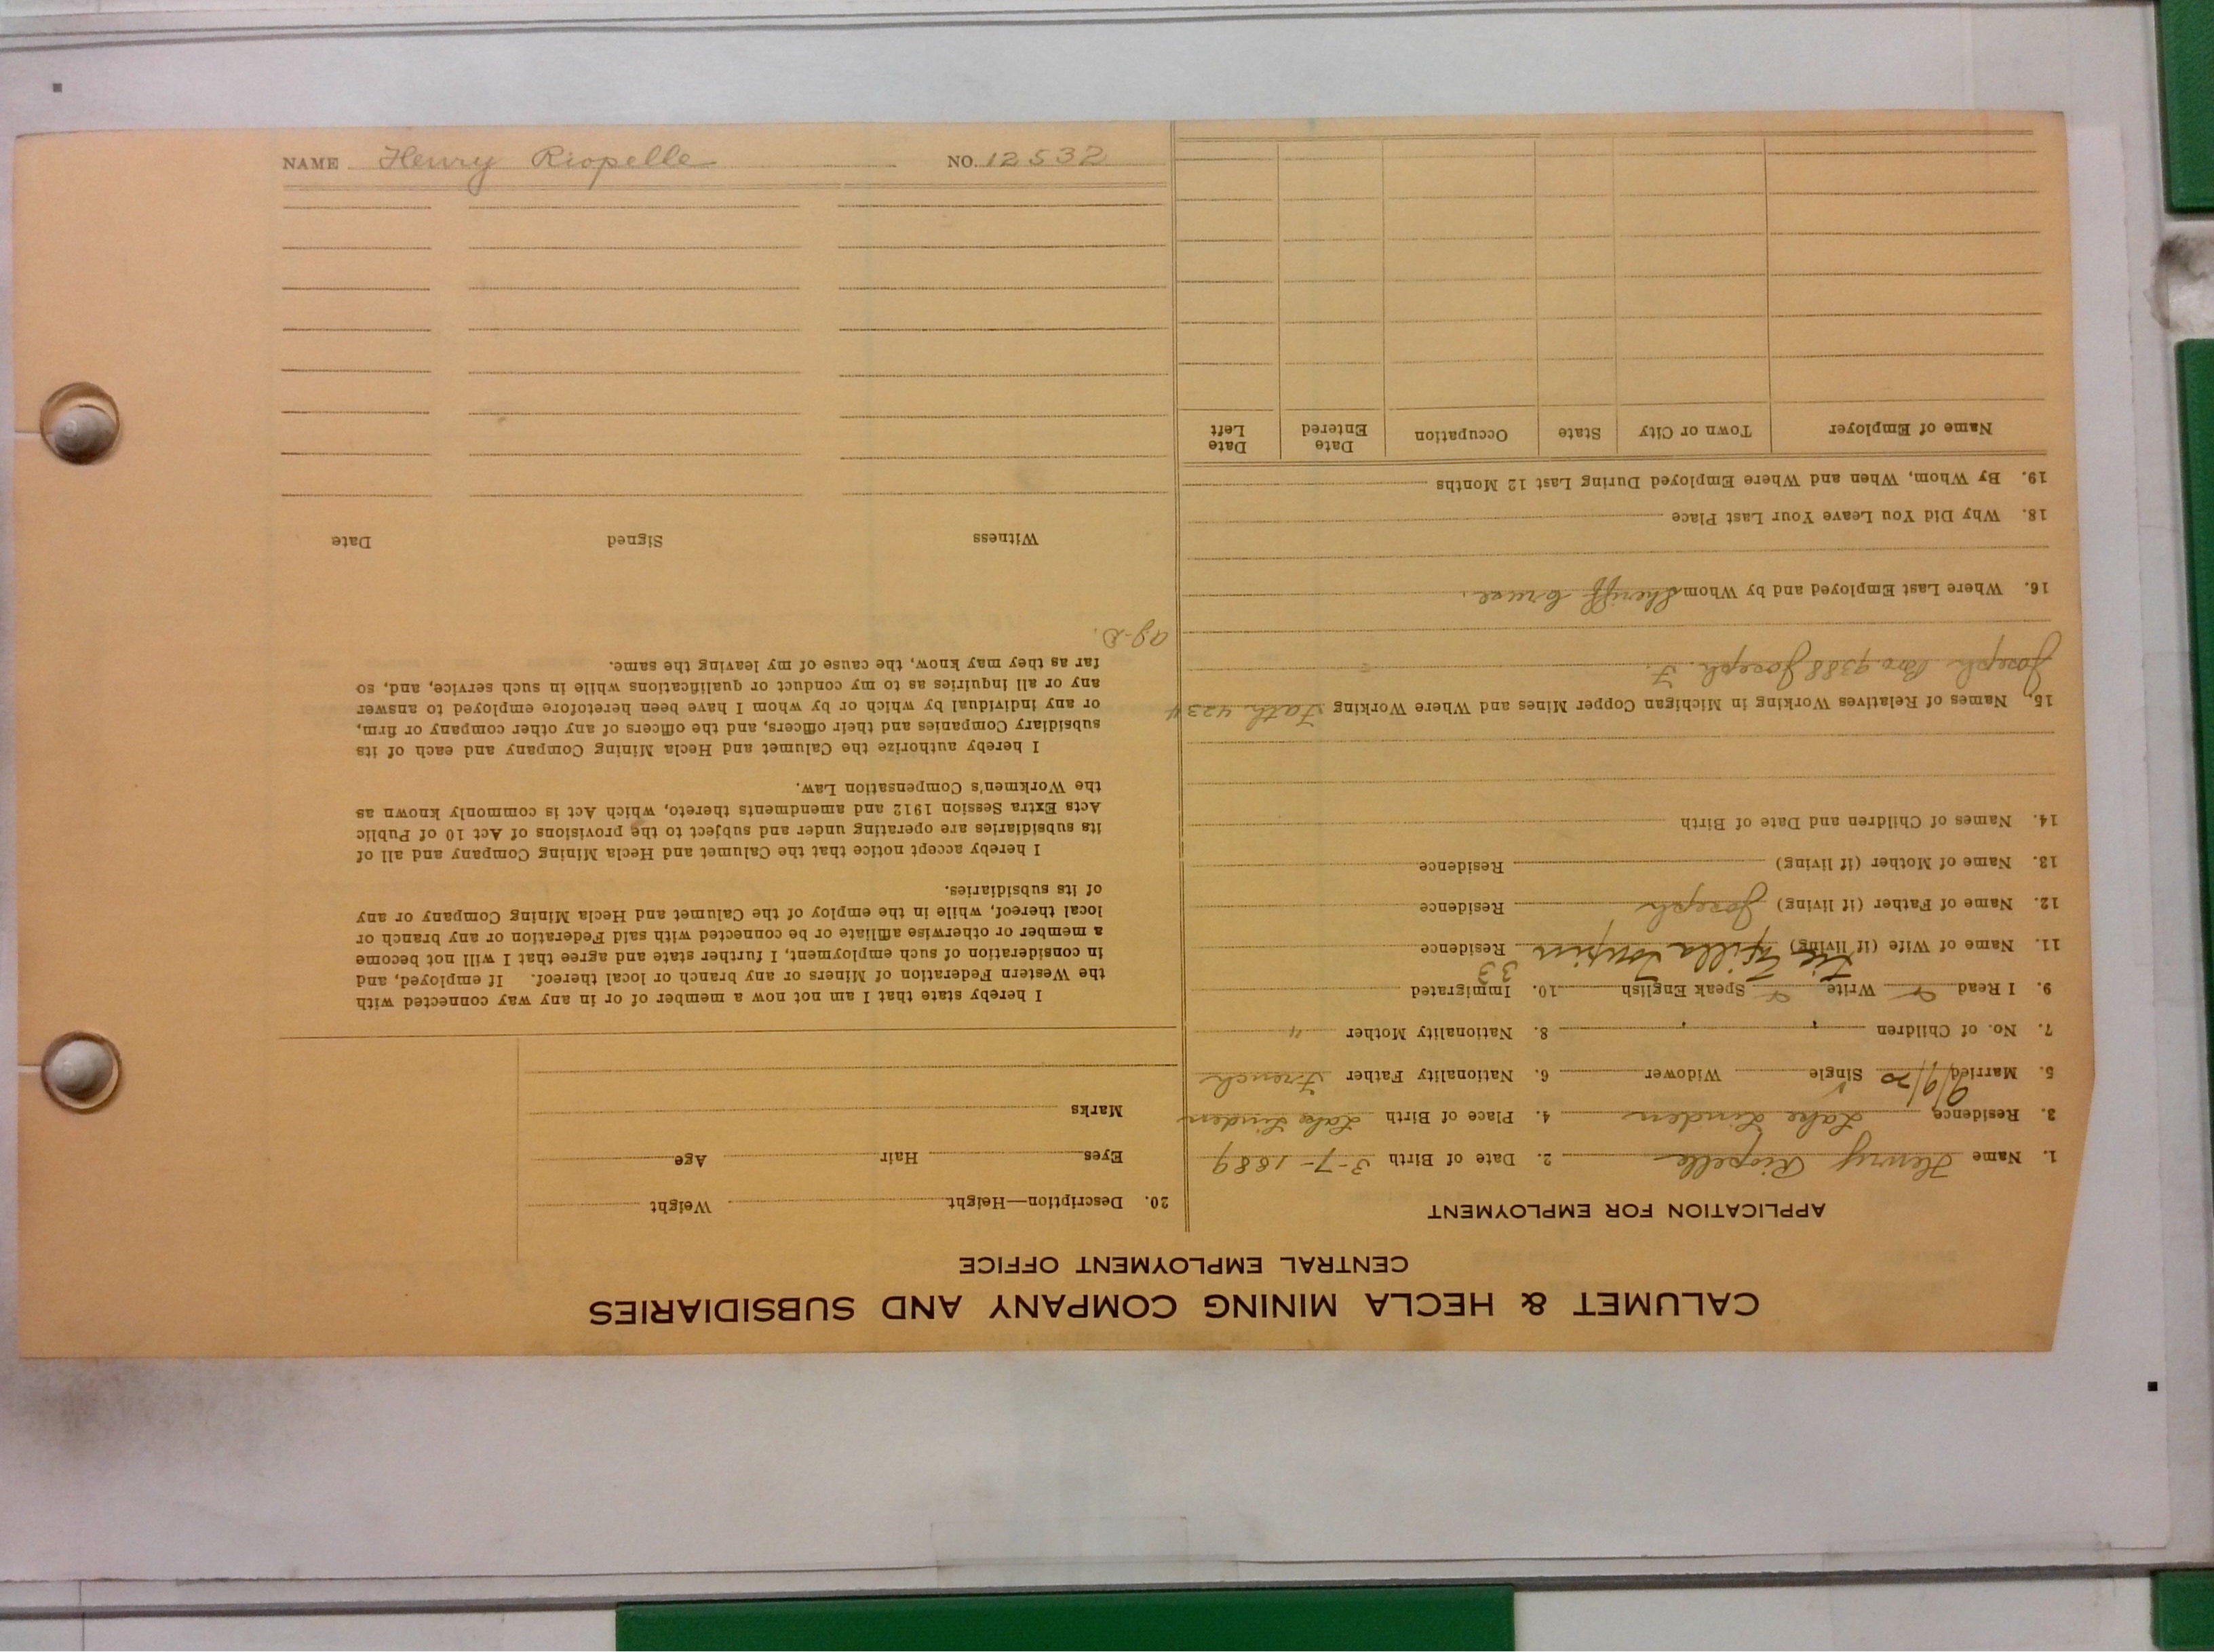 NAME Henry Riopelle NO. 12532
CALUMET & HECLA MINING COMPANY AND SUBSIDIARIES
CENTRAL EMPLOYMENT OFFICE
APPLICATION FOR EMPLOYMENT
1. Name Henry Riopelle 2. Date of Birth 3-7-1889
3. Residence Lake Linden 4. Place of Birth Lake Linden
5. Married 9/9/20 Single ✓ Widower 6. Nationality Father French
7. No. of Children 8. Nationality Mother "
9. I Read Write Speak English 10. Immigrated
33
11. Name of Wife (if living) Residence
12. Name of Father (if living) Joseph Residence
13. Name of Mother (if living) Residence
14. Names of Children and Date of Birth
15. Names of Relatives Working in Michigan Copper Mines and Where Working Fath 4234
Joseph Bro 9388 Joseph F.
16. Where Last Employed and by Whom Sheriff Cruse.
18. Why Did You Leave Your Last Place
19. By Whom, When and Where Employed During Last 12 Months
Name of Employer Town or City State Occupation Date Entered Date Left
20. Description—Height Weight
Eyes Hair Age
Marks
I hereby state that I am not now a member of or in any way connected with
the Western Federation of Miners or any branch or local thereof. If employed, and
in consideration of such employment, I further state and agree that I will not become
a member or otherwise affiliate or be connected with said Federation or any branch or
local thereof, while in the employ of the Calumet and Hecla Mining Company or any
of its subsidiaries.
I hereby accept notice that the Calumet and Hecla Mining Company and all of
its subsidiaries are operating under and subject to the provisions of Act 10 of Public
Acts Extra Session 1912 and amendments thereto, which Act is commonly known as
the Workmen's Compensation Law.
I hereby authorize the Calumet and Hecla Mining Company and each of its
subsidiary Companies and their officers, and the officers of any other company or firm,
or any individual by which or by whom I have been heretofore employed to answer
any or all inquiries as to my conduct or qualifications while in such service, and, so
far as they may know, the cause of my leaving the same.
Witness Signed Date